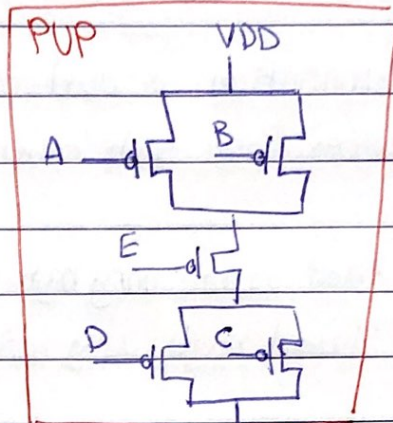 PUP
VDD
A
B
E
D
C